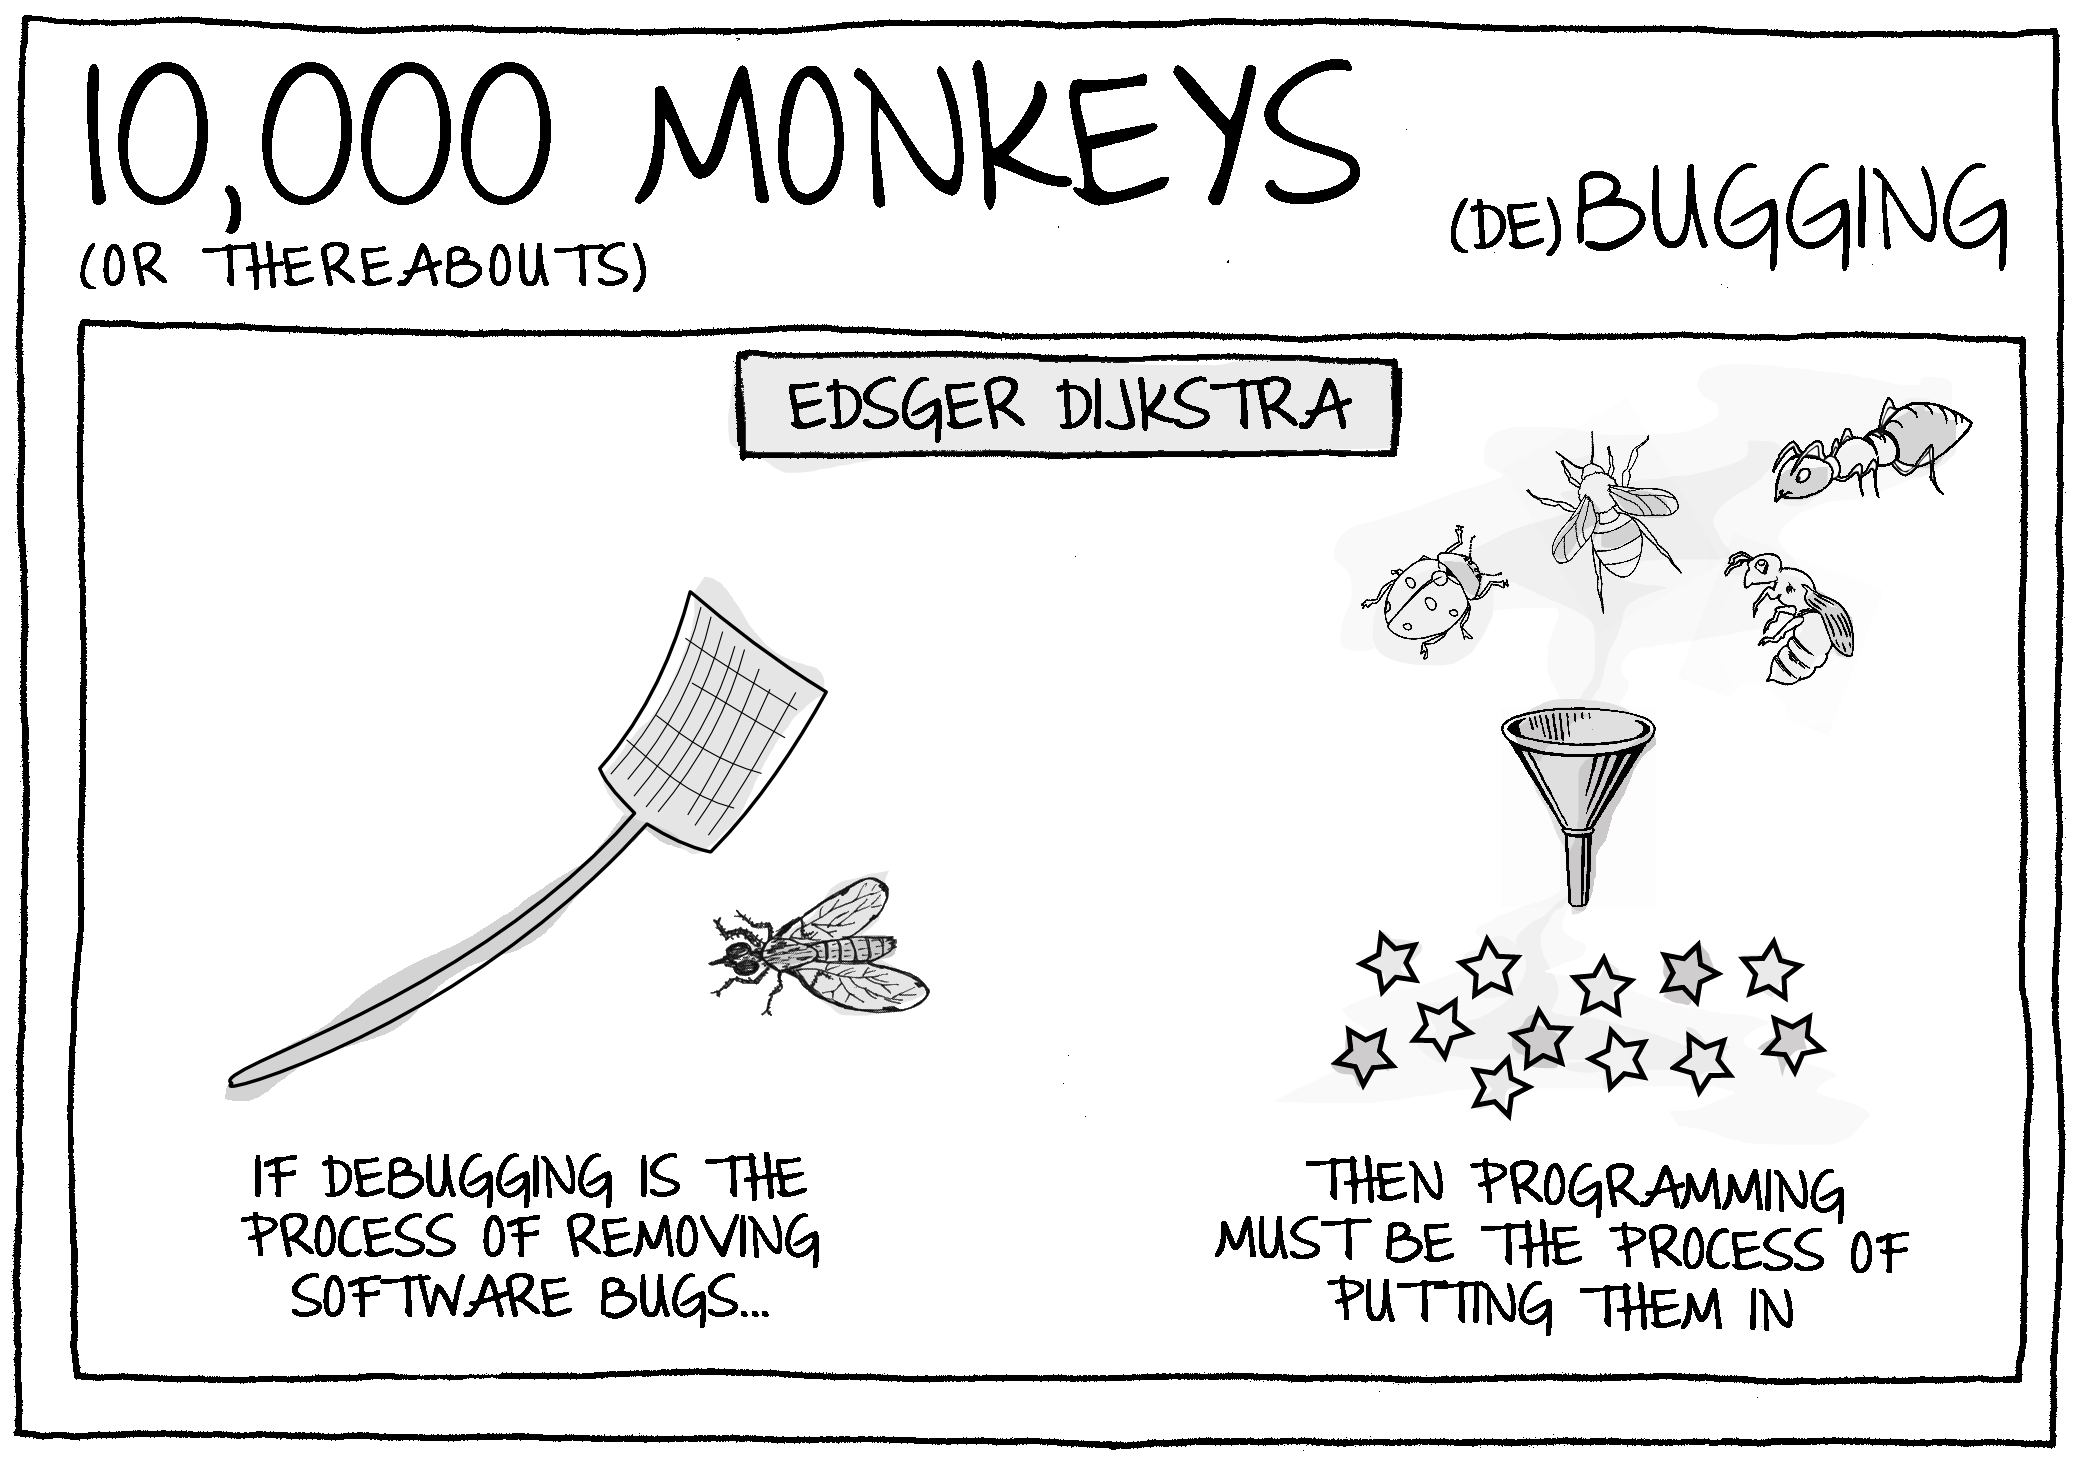 10,000 MONKEYS
(OR THEREABOUTS)
(DE)BUGGING
EDSGER DIJKSTRA
IF DEBUGGING IS THE
PROCESS OF REMOVING
SOFTWARE BUGS...
THEN PROGRAMMING
MUST BE THE PROCESS OF
PUTTING THEM IN